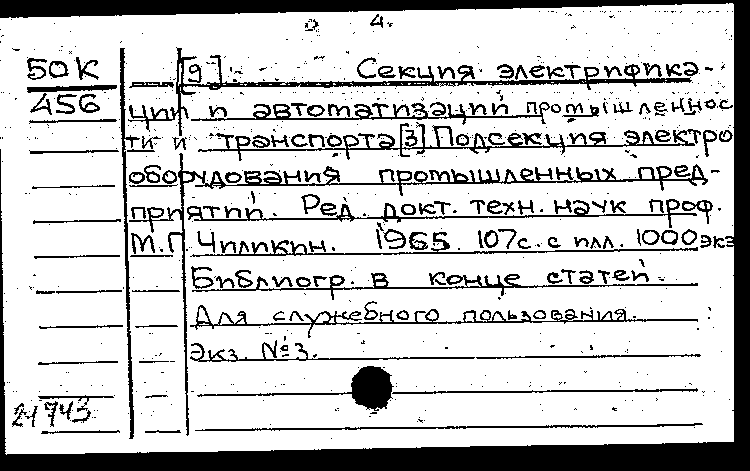 4.
50К [9] Секция электрифика-
456 ции и автоматизации промышленнос
ти и транспорта [3] Подсекция электро
оборудования промышленных пред-
приятий. Ред. докт. техн. наук проф.
М.Г. Чиликин. 1965. 107с. с илл. 1000 экз
Библиогр. в конце статей.
Для служебного пользования.
Экз. №3.
24743